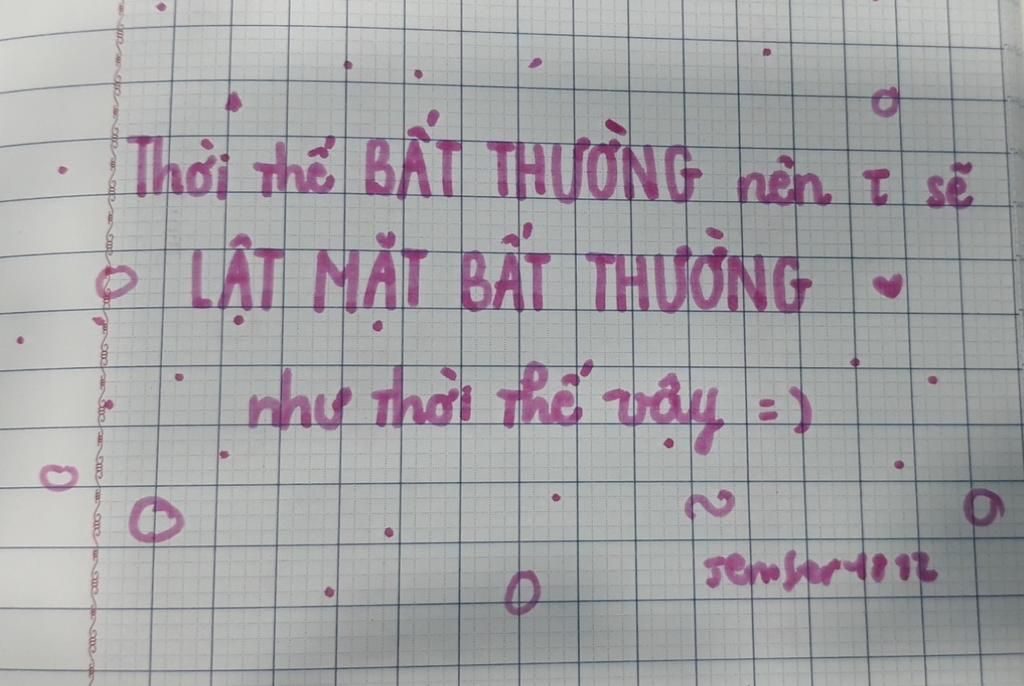 Thời thế BẤT THƯỜNG nên t sẽ
LẬT MẶT BẤT THƯỜNG
như thời thế vậy =)